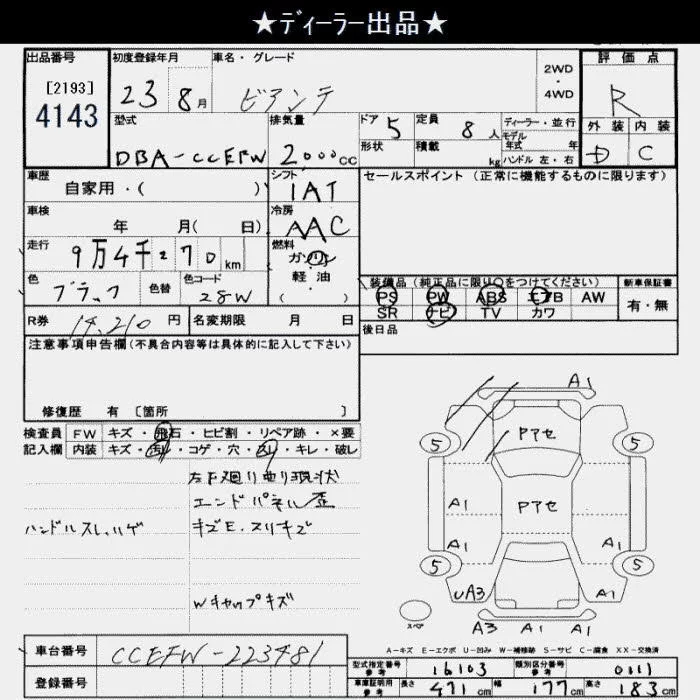 ★ディーラー出品★
出品番号 初度登録年月 車名・グレード 2WD・4WD 評価点
[2193] 4143 23 8月 ビアンテ R
型式 排気量 ドア 5 定員 8人 ディーラー・並行 外装 内装
DBA-CCEFW 2000cc 形状 積載 kg モデル年式 年 ハンドル 左・右 D C
車歴 シフト セールスポイント(正常に機能するものに限ります)
自家用・( ) IAT
車検 冷房
年 月( 日) AAC
走行 燃料
9万4千270km ガソリン
軽・油
( )
色 ブラック 色替 色コード 28W
装備品(純正品に限り○をつけてください) 新車保証書
PS PW ABS エアB AW 有・無
SR ナビ TV カワ
R券 14,210円 名変期限 月 日 後日品
注意事項申告欄(不具合内容等は具体的に記入して下さい)
修復歴 有〔箇所 〕
検査員 FW キズ・飛石・ヒビ割・リペア跡・×要
記入欄 内装 キズ・汚れ・コゲ・穴・スレ・キレ・破し
左下廻り曲り現状
エンドパネル歪
ハンドルスレ、ハゲ キズE.スリキズ
Wキャップキズ
A1
5 Pアセ 5
A1 Pアセ
A1 A1
5 5
UA3 A1
スペア A3 A1 A1
A-キズ E-エクボ U-凹み W-補修跡 S-サビ C-腐食 XX-交換済
車台番号 CCEFW-223481
登録番号
型式指定番号 参考 16103 類別区分番号 参考 0111
車庫証明用 参考 長さ 471cm 幅 177cm 高さ 183cm